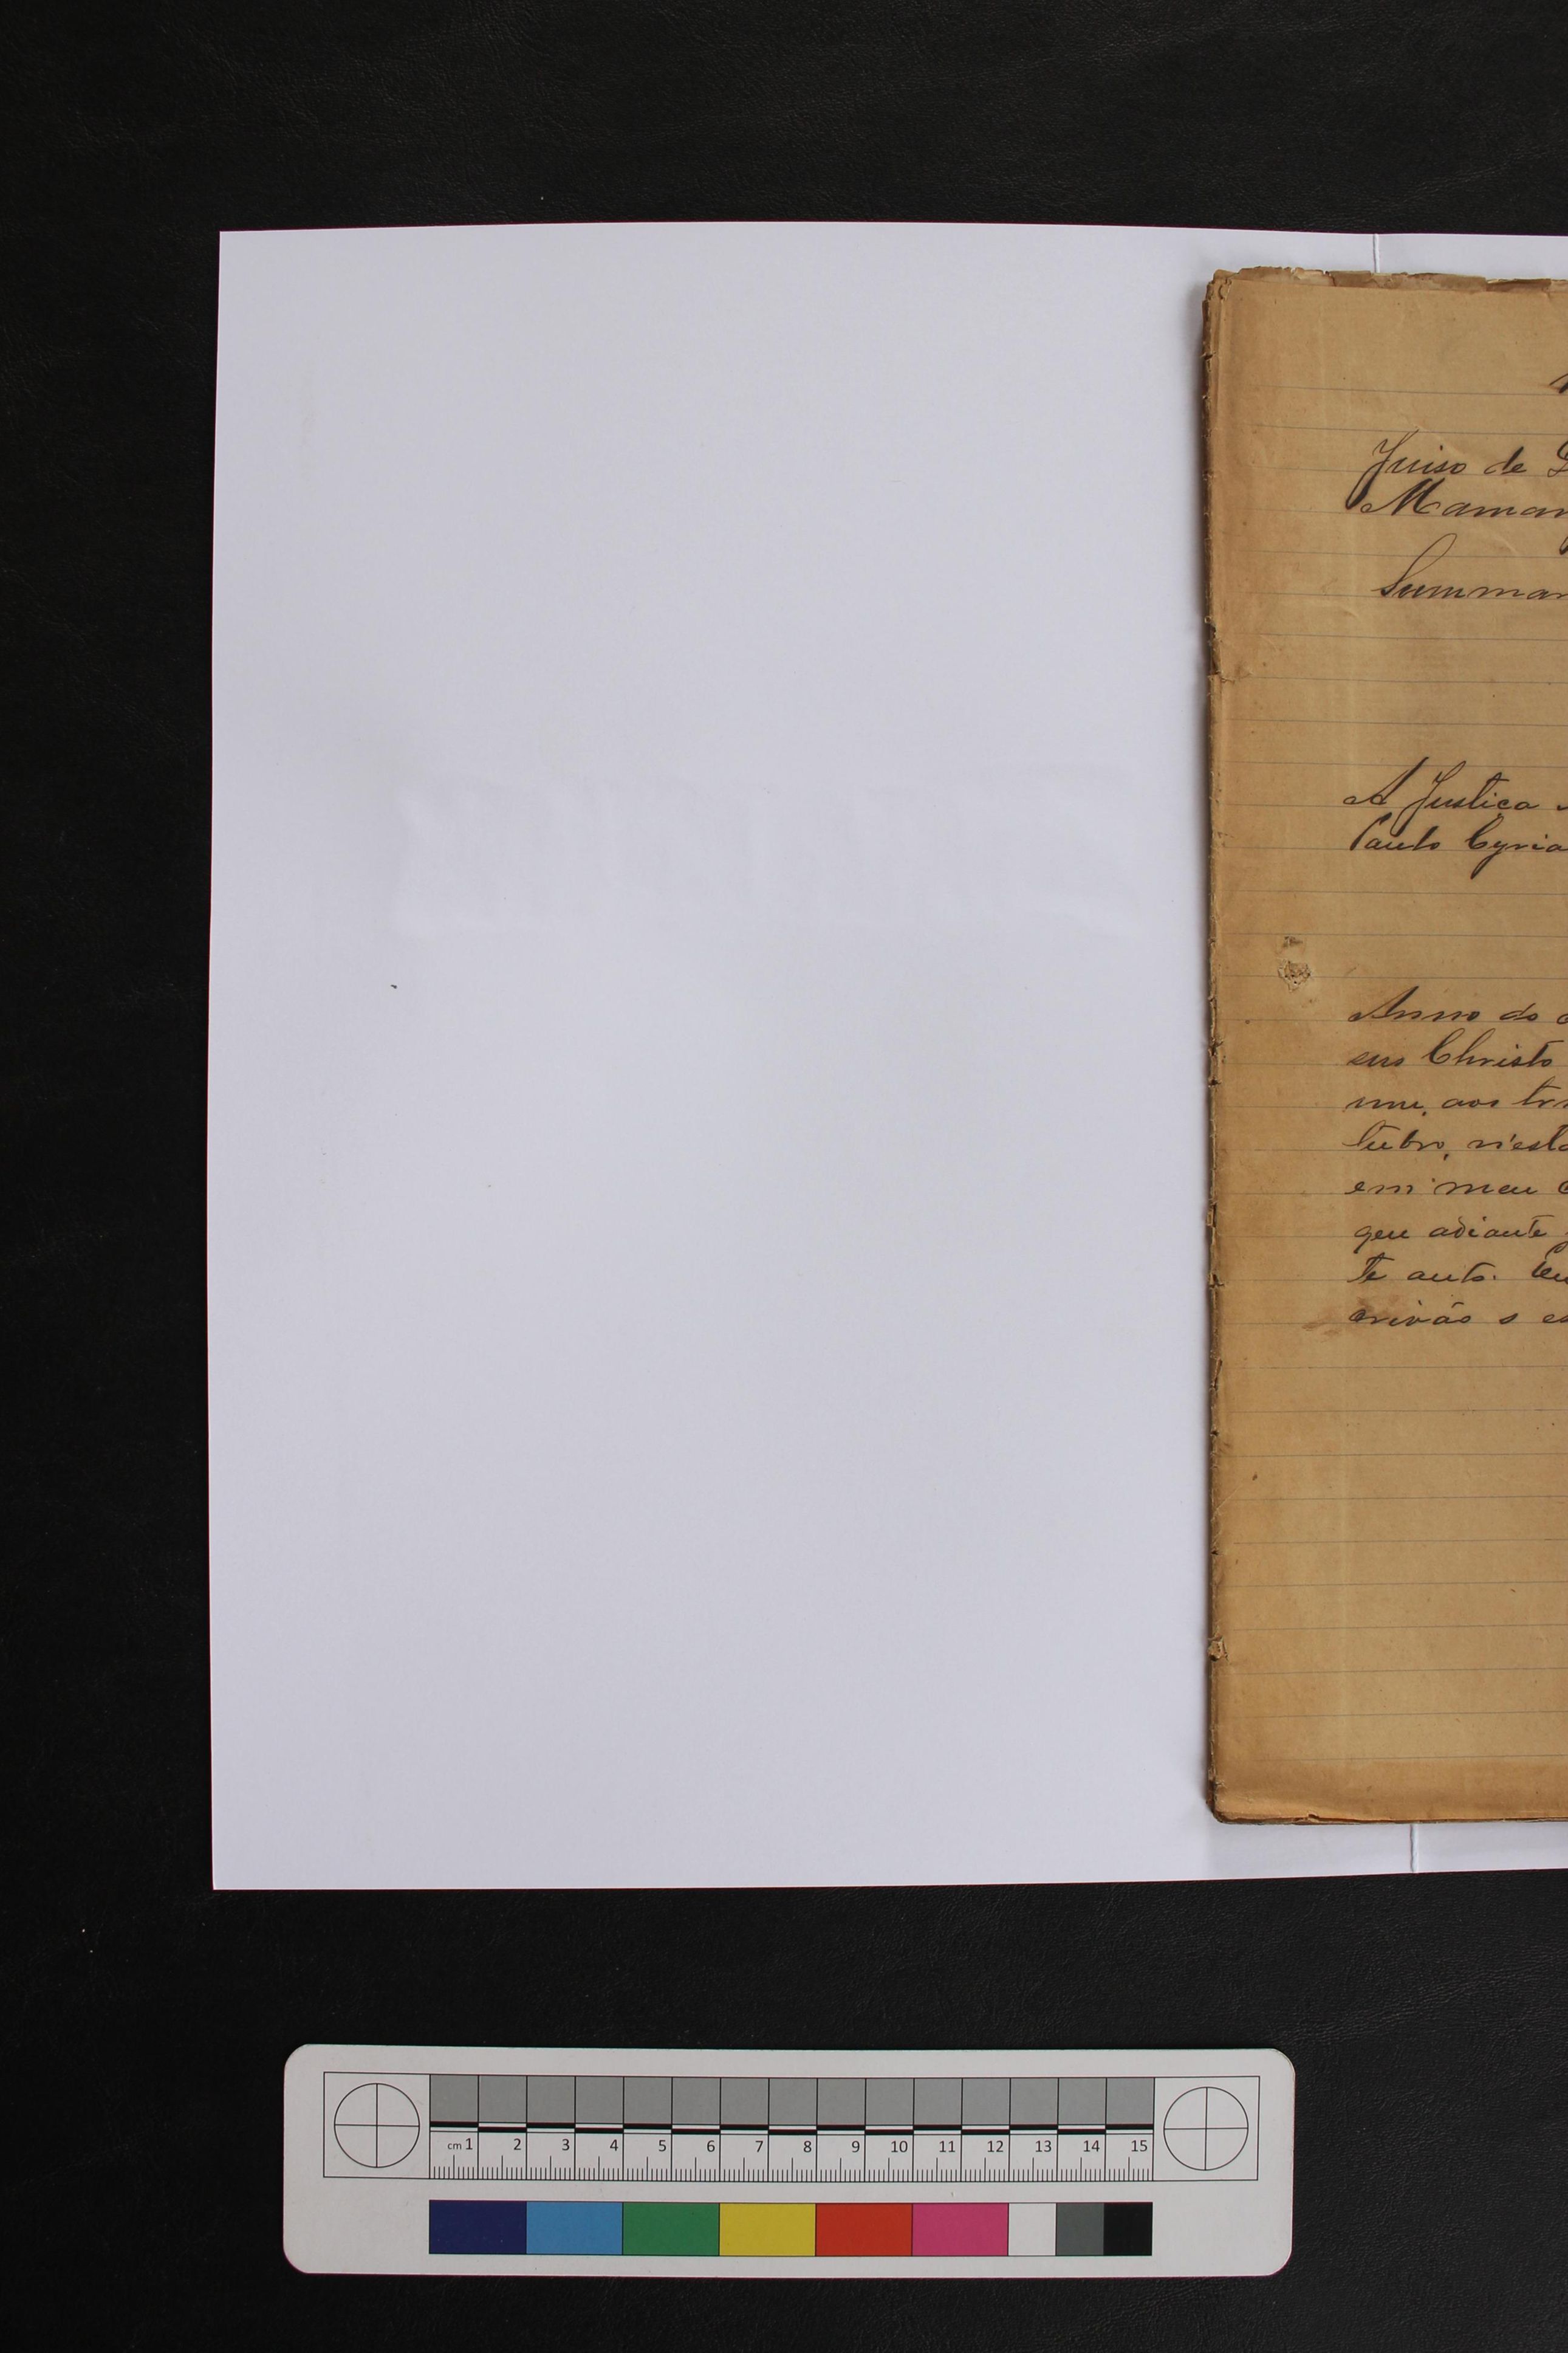 Juiso de
Maman
Summar
A Justiça
Paulo Cyria
Anno do
sus Christo
um, aos tr
tubro, n'esta
em meu
que adiante
te auto. Eu
crivão o es
cm 1 2 3 4 5 6 7 8 9 10 11 12 13 14 15